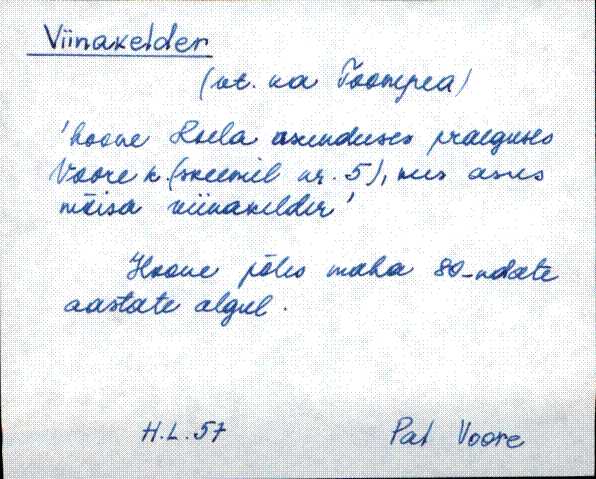 Viinakelder
(vt. ka Toompea)
'hoone Roela asunduses praeguses
Voore k. (skeemil nr. 5), kus asus
mõisa viinakelder'
Hoone põles maha 80-ndate
aastate algul.
H.L. 57
Pal Voore